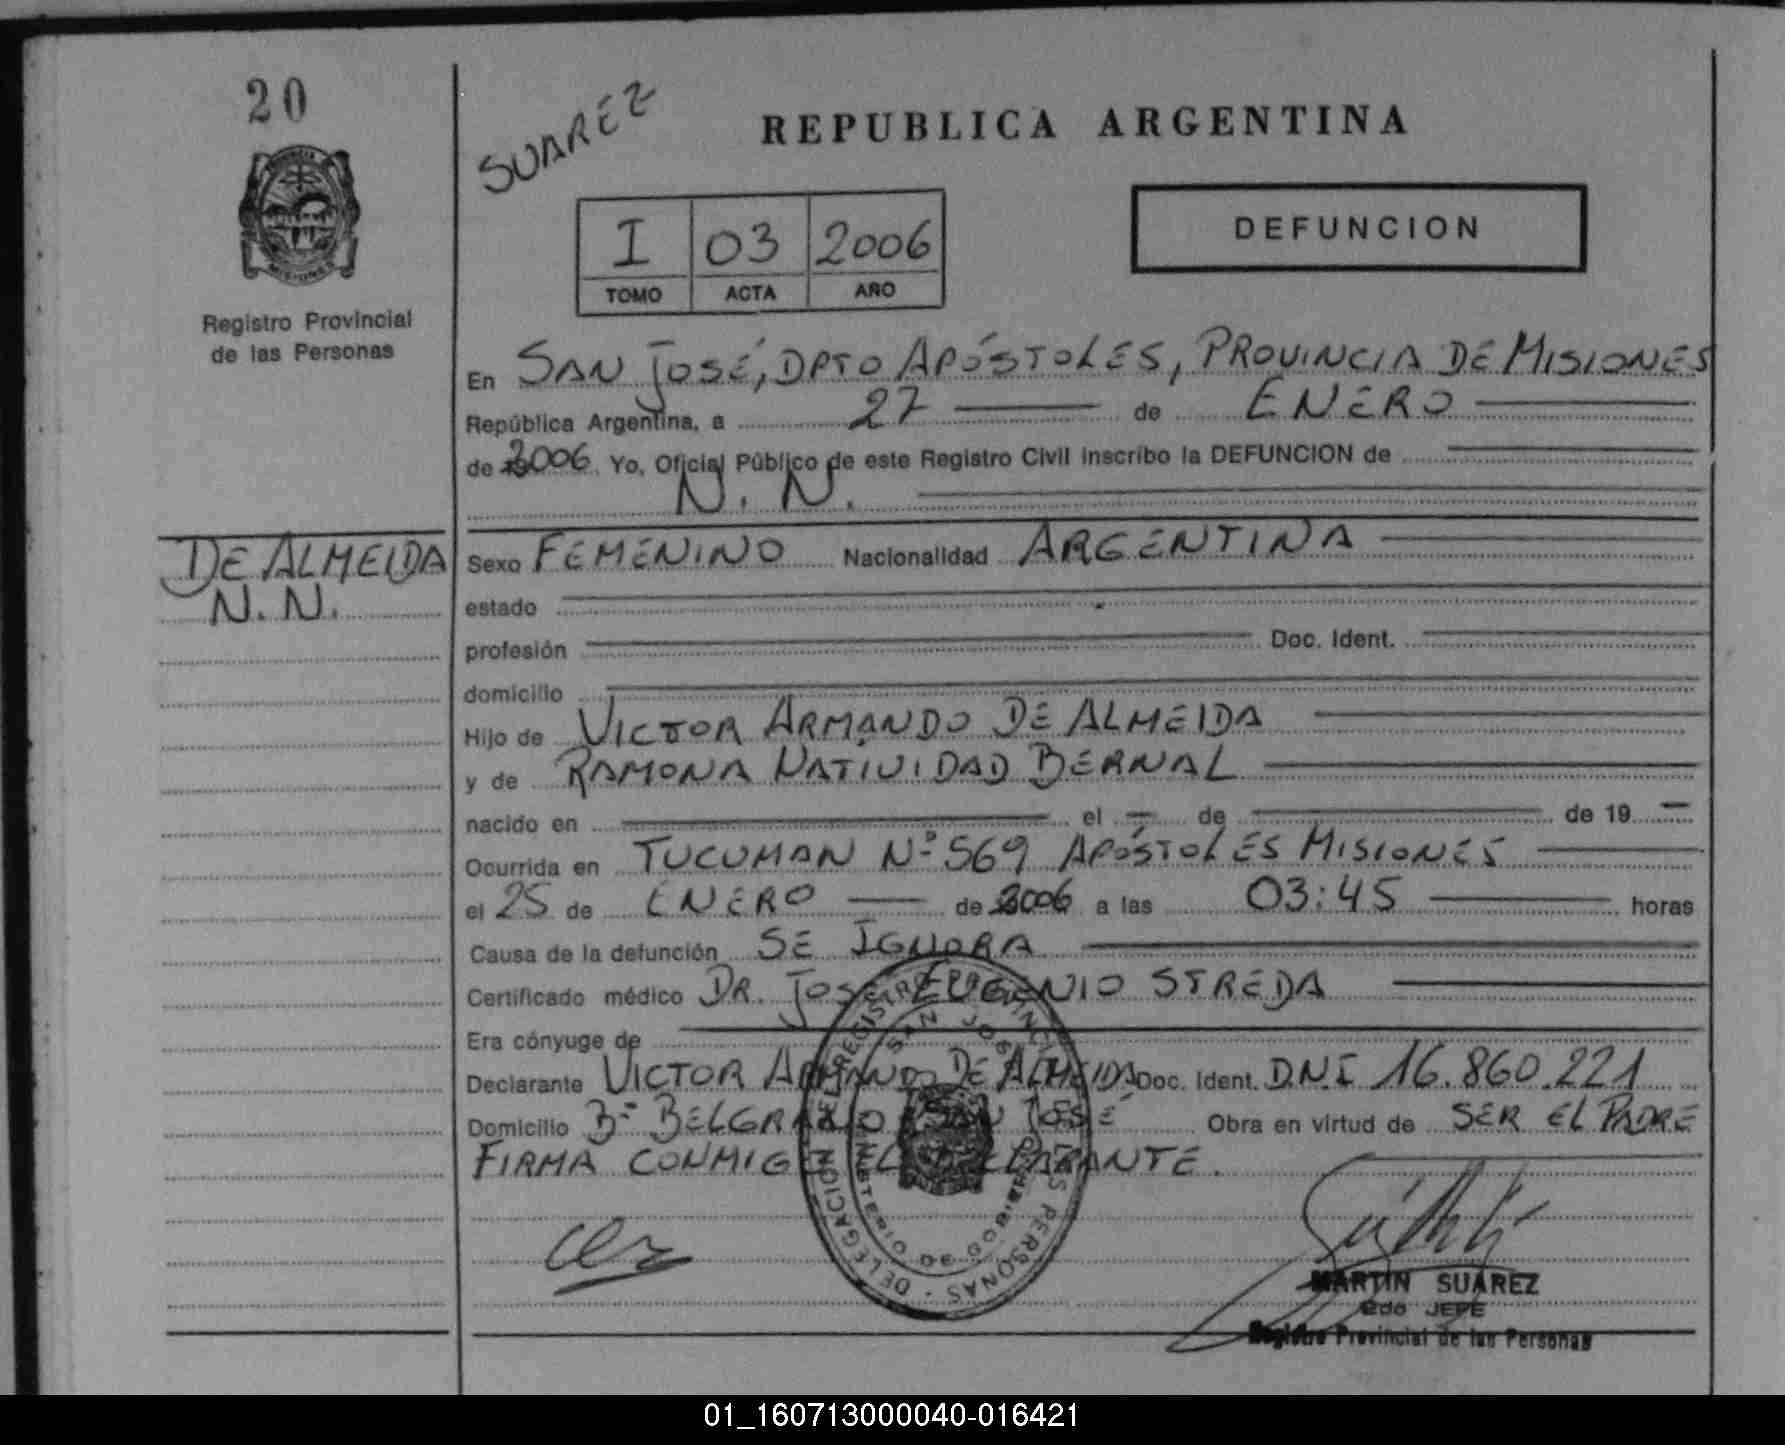 20
SUAREZ
REPUBLICA ARGENTINA
I 03 2006
TOMO ACTA AÑO
DEFUNCION
MISIONES
Registro Provincial
de las Personas
En SAN JOSÉ, DPTO APÓSTOLES, PROVINCIA DE MISIONES
República Argentina, a 27 de ENERO
de 2006 Yo, Oficial Público de este Registro Civil inscribo la DEFUNCION de
N. N.
DE ALMEIDA
N. N.
Sexo FEMENINO Nacionalidad ARGENTINA
estado
profesión Doc. Ident.
domicilio
Hijo de VICTOR ARMANDO DE ALMEIDA
y de RAMONA NATIVIDAD BERNAL
nacido en el de de 19
Ocurrida en TUCUMAN Nº 569 APÓSTOLES MISIONES
el 25 de ENERO de 2006 a las 03:45 horas
Causa de la defunción SE IGNORA
Certificado médico DR. JOSE EUGENIO STREDA
Era cónyuge de
Declarante VICTOR ARMANDO DE ALMEIDA Doc. Ident. DNI 16.860.221
Domicilio Bº BELGRANO SAN JOSÉ Obra en virtud de SER EL PADRE
FIRMA CONMIGO EL DECLARANTE.
DELEGACION DEL REGISTRO PROVINCIAL DE LAS PERSONAS
SAN JOSE
MINISTERIO DE GOBIERNO
MARTIN SUAREZ
2do JEFE
Registro Provincial de las Personas
01_160713000040-016421